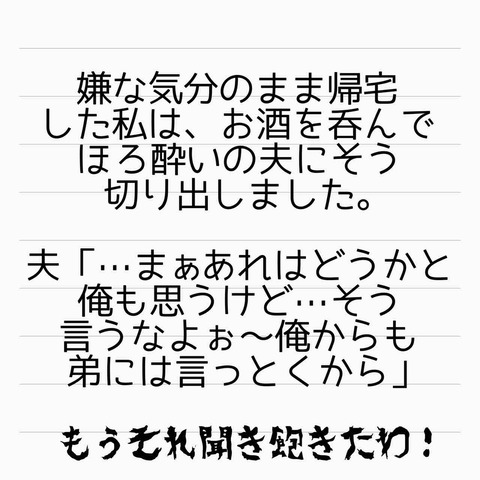 嫌な気分のまま帰宅
した私は、お酒を呑んで
ほろ酔いの夫にそう
切り出しました。
夫「…まぁあれはどうかと
俺も思うけど…そう
言うなよぉ〜俺からも
弟には言っとくから」
もうそれ聞き飽きたわ！